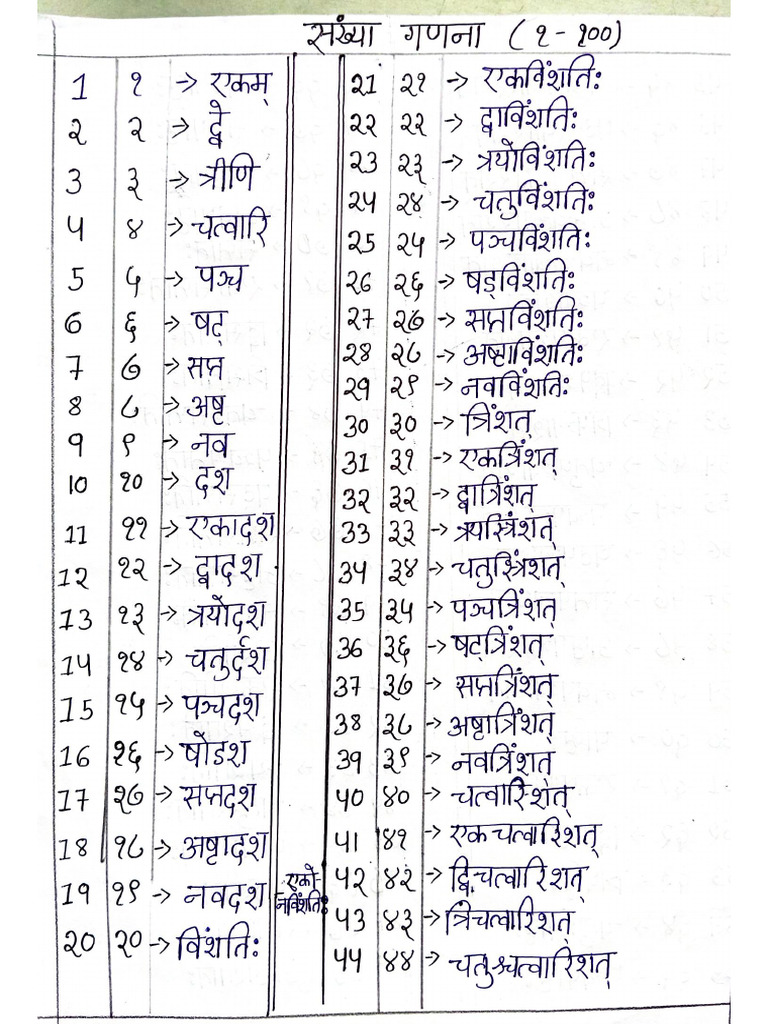 संख्या गणना (१-१००)
1 १ → एकम्
2 २ → द्वे
3 ३ → त्रीणि
4 ४ → चत्वारि
5 ५ → पञ्च
6 ६ → षट्
7 ७ → सप्त
8 ८ → अष्ट
9 ९ → नव
10 १० → दश
11 ११ → एकादश
12 १२ → द्वादश
13 १३ → त्रयोदश
14 १४ → चतुर्दश
15 १५ → पञ्चदश
16 १६ → षोडश
17 १७ → सप्तदश
18 १८ → अष्टादश
19 १९ → नवदश
एको-
नविंशतिः
20 २० → विंशतिः
21 २१ → एकविंशतिः
22 २२ → द्वाविंशतिः
23 २३ → त्रयोविंशतिः
24 २४ → चतुविंशतिः
25 २५ → पञ्चविंशतिः
26 २६ → षड्विंशतिः
27 २७ → सप्तविंशतिः
28 २८ → अष्टाविंशतिः
29 २९ → नवविंशतिः
30 ३० → त्रिंशत्
31 ३१ → एकत्रिंशत्
32 ३२ → द्वात्रिंशत्
33 ३३ → त्रयस्त्रिंशत्
34 ३४ → चतुस्त्रिंशत्
35 ३५ → पञ्चत्रिंशत्
36 ३६ → षट्त्रिंशत्
37 ३७ → सप्तत्रिंशत्
38 ३८ → अष्टात्रिंशत्
39 ३९ → नवत्रिंशत्
40 ४० → चत्वारिंशत्
41 ४१ → एकचत्वारिशत्
42 ४२ → द्विचत्वारिशत्
43 ४३ → त्रिचत्वारिशत्
44 ४४ → चतुश्चत्वारिशत्